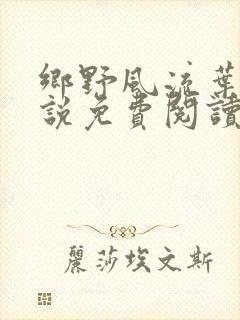 鄉野風流葉
說免費閱讀
麗莎埃文斯